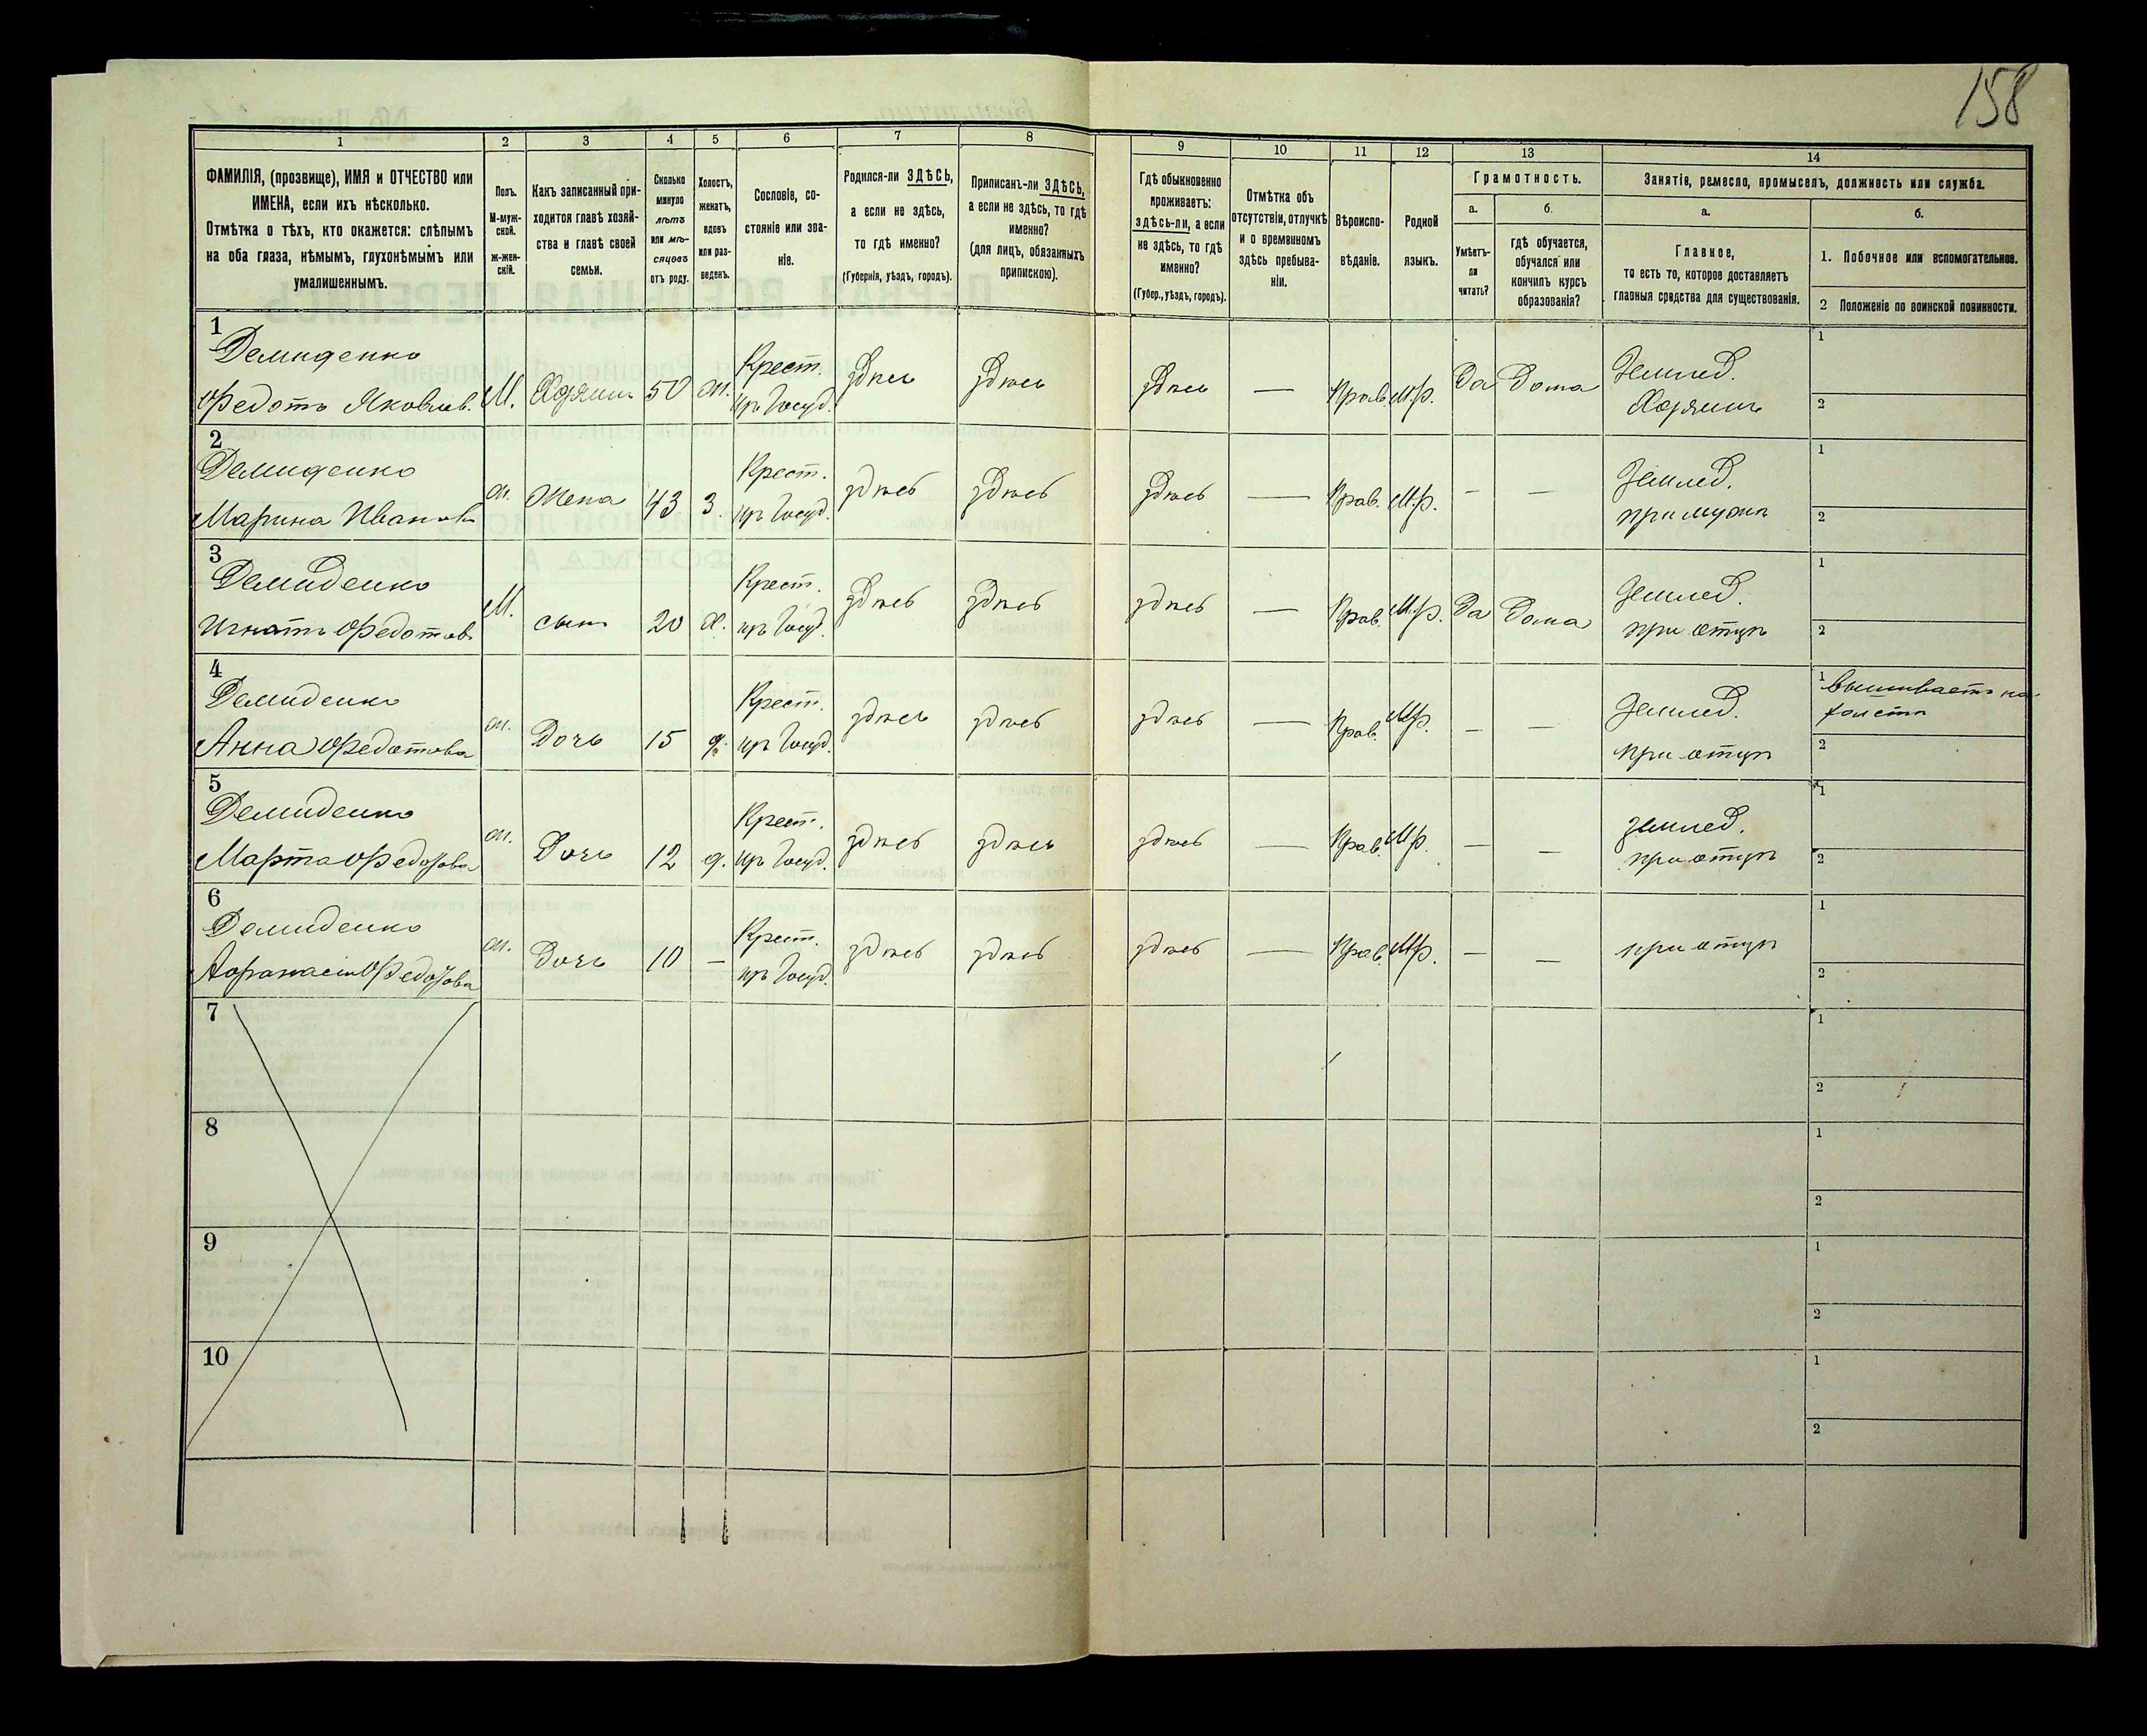 158
1 2 3 4 5 6 7 8 9 10 11 12 13 14
ФАМИЛІЯ, (прозвище), ИМЯ и ОТЧЕСТВО или
ИМЕНА, если ихъ нѣсколько.
Отмѣтка о тѣхъ, кто окажется: слѣпымъ
на оба глаза, нѣмымъ, глухонѣмымъ или
умалишеннымъ.
Полъ.
М-муж-
ской.
ж-жен-
скій.
Какъ записанный при-
ходится главѣ хозяй-
ства и главѣ своей
семьи.
Сколько
минуло
лѣтъ
или мѣ-
сяцевъ
отъ роду.
Холостъ,
женатъ,
вдовъ
или раз-
веденъ.
Сословіе, со-
стояніе или зва-
ніе.
Родился-ли ЗДѢСЬ,
а если не здѣсь,
то гдѣ именно?
(Губернія, уѣздъ, городъ).
Приписанъ-ли ЗДѢСЬ,
а если не здѣсь, то гдѣ
именно?
(для лицъ, обязанныхъ
припискою).
Гдѣ обыкновенно
проживаетъ:
здѣсь-ли, а если
не здѣсь, то гдѣ
именно?
(Губер., уѣздъ, городъ).
Отмѣтка объ
отсутствіи, отлучкѣ
и о временномъ
здѣсь пребыва-
ніи.
Вѣроиспо-
вѣданіе.
Родной
языкъ.
Грамотность.
а.
Умѣетъ-
ли
читать?
б.
гдѣ обучается,
обучался или
кончилъ курсъ
образованія?
Занятіе, ремесло, промыселъ, должность или служба.
а.
Главное,
то есть то, которое доставляетъ
главныя средства для существованія.
б.
1. Побочное или вспомогательное.
2 Положеніе по воинской повинности.
1
Демиденко
Федотъ Яковлев. М. Хозяинъ 50 ж. Крест. изъ Госуд. здѣсь здѣсь здѣсь — Прав. М.р. Да Дома Землед. Хозяинъ
1
2
2
Демиденко
Марина Иванов ж. Жена 43 з. Крест. изъ Госуд. здѣсь здѣсь здѣсь — Прав. М.р. — — Землед. при мужѣ
1
2
3
Демиденко
Игнатъ Федотовъ М. сынъ 20 х. Крест. изъ Госуд. здѣсь здѣсь здѣсь — Прав. М.р. Да Дома Землед. при отцѣ
1
2
4
Демиденко
Анна Федотова ж. Дочь 15 д. Крест. изъ Госуд. здѣсь здѣсь здѣсь — Прав. Мр. — — Землед. при отцѣ
1 вышиваетъ на
холстѣ
2
5
Демиденко
Марта Федотова ж. Дочь 12 д. Крест. изъ Госуд. здѣсь здѣсь здѣсь — Прав. Мр. — — землед. при отцѣ
1
2
6
Демиденко
Федотова ж. Дочь 10 — Крест. изъ Госуд. здѣсь здѣсь здѣсь — Прав. Мр. — — при отцѣ
1
2
7
1
2
8
1
2
9
1
2
10
1
2